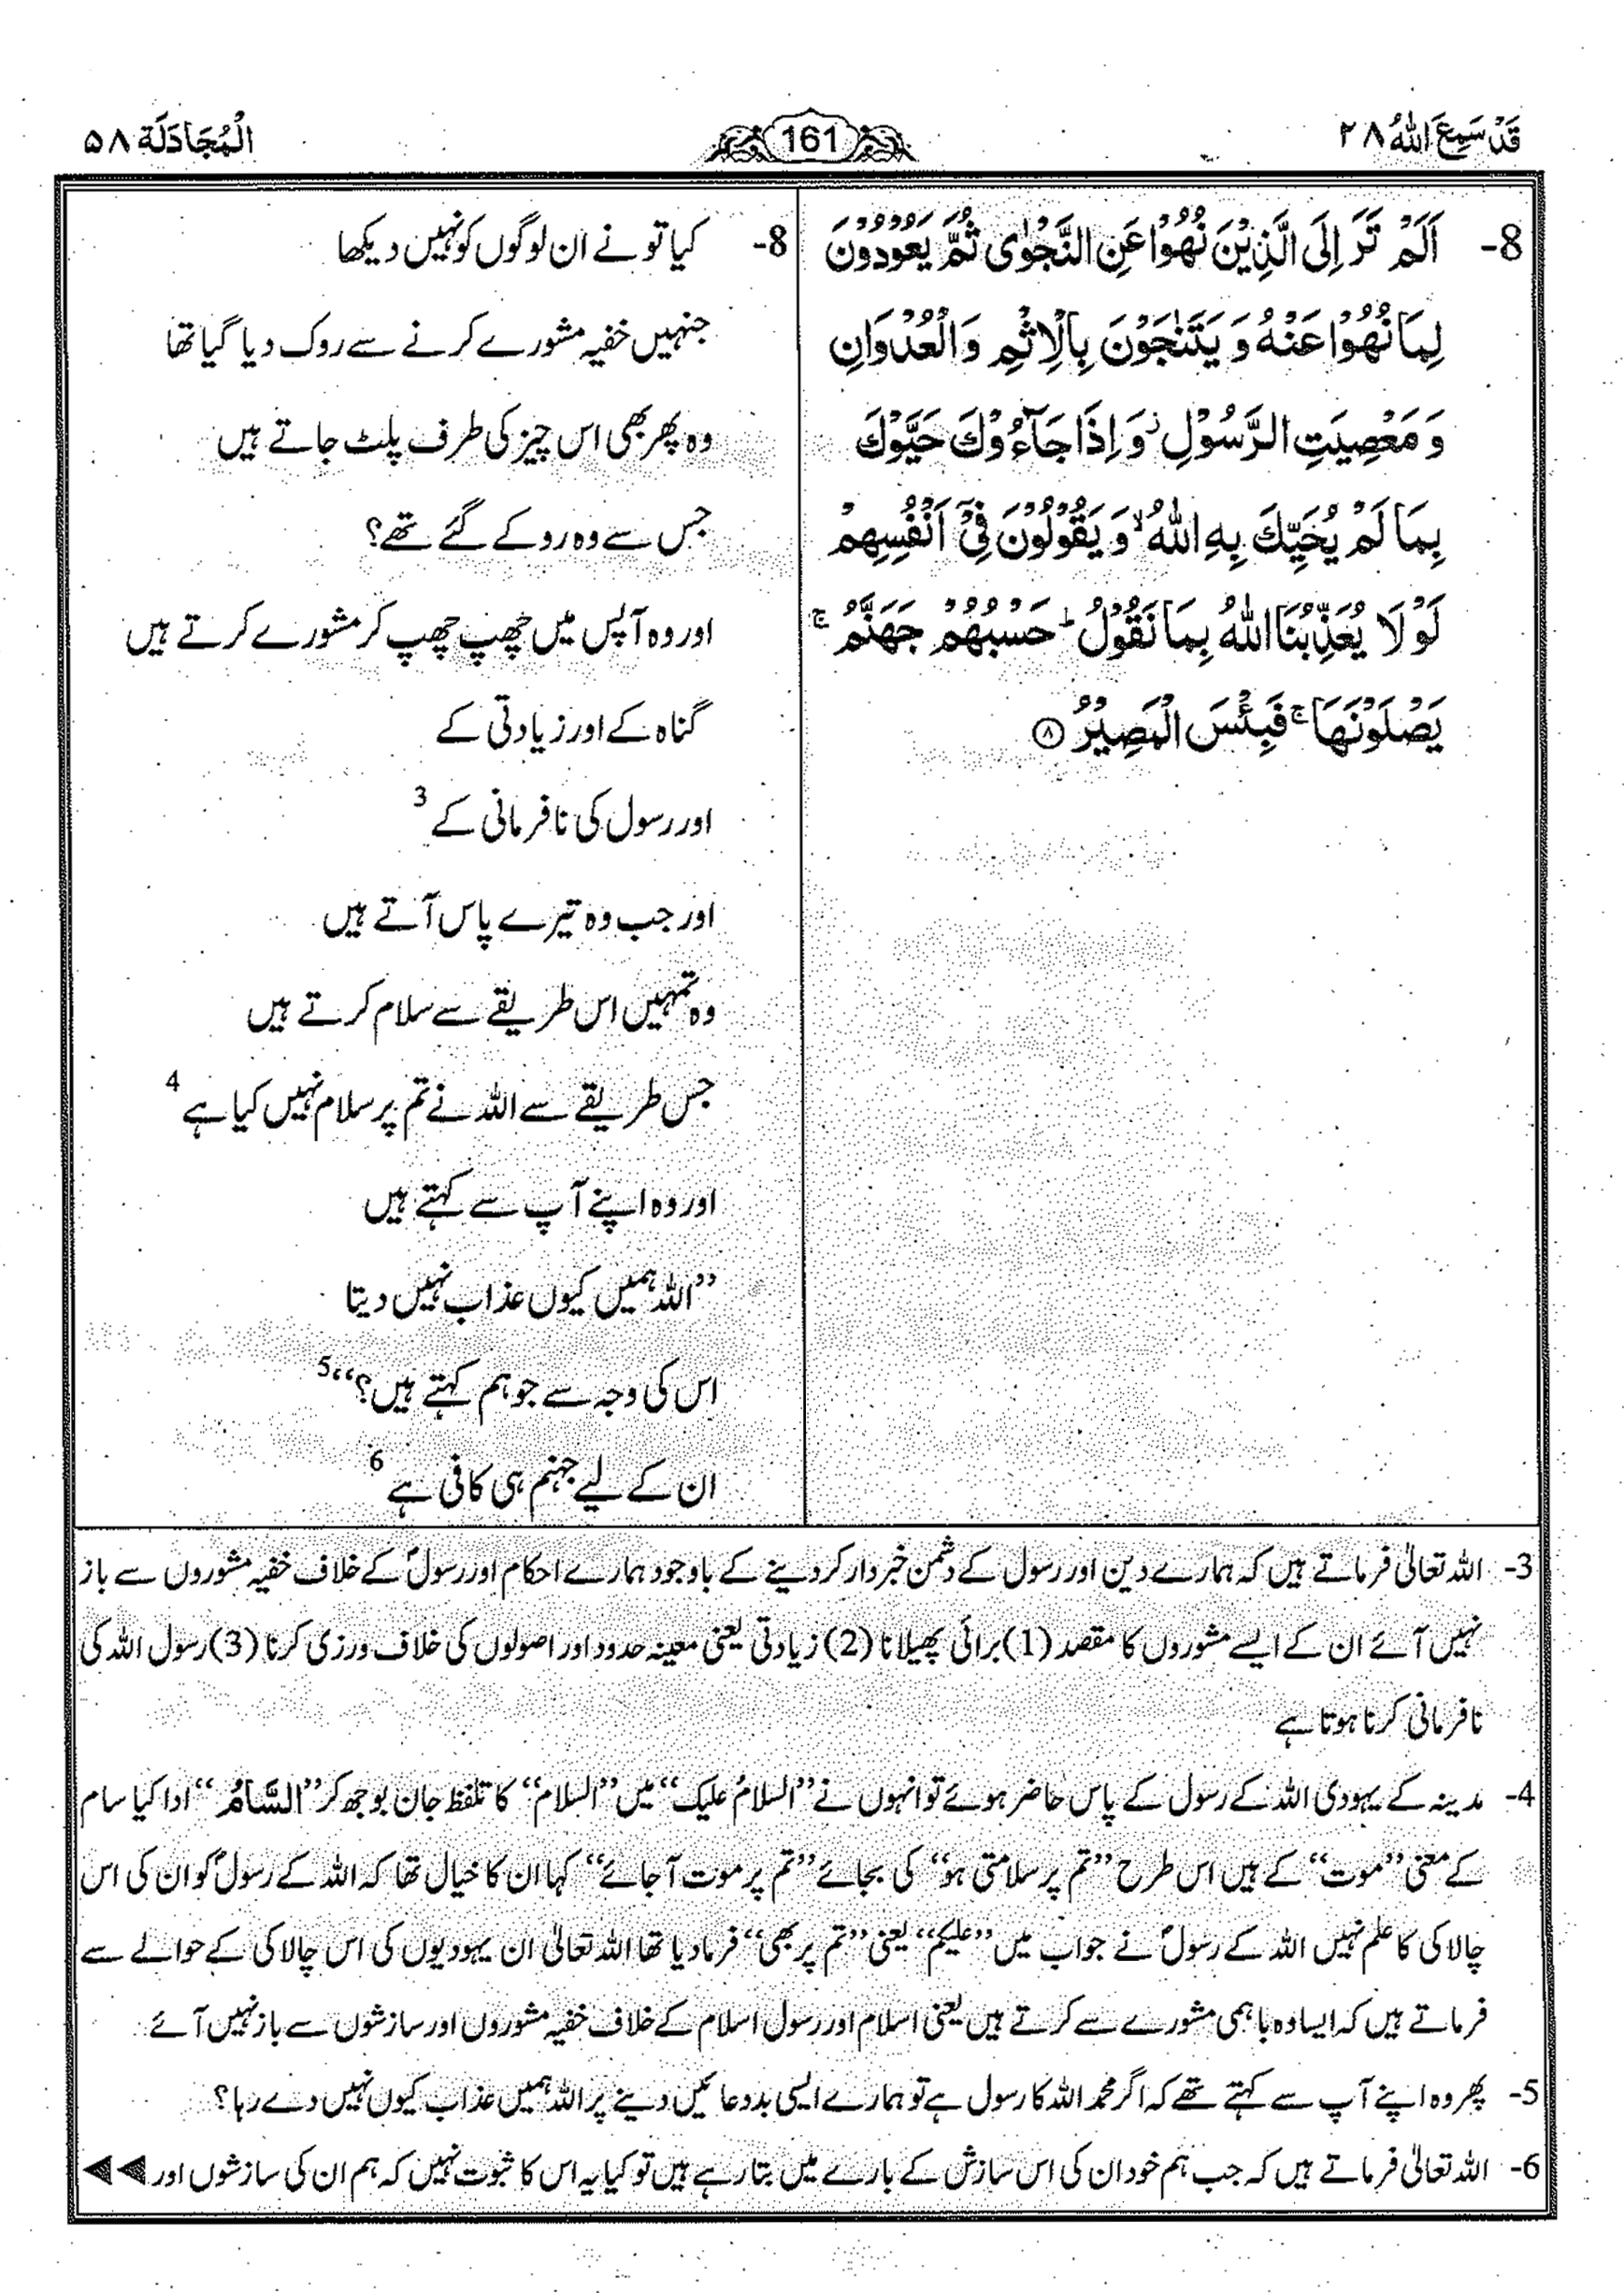 قَدْ سَمِعَ اللّٰهُ ٢٨
161
الْمُجَادَلَة ٥٨
8- اَلَمْ تَرَ اِلَى الَّذِيْنَ نُهُوْا عَنِ النَّجْوٰى ثُمَّ يَعُوْدُوْنَ
لِمَا نُهُوْا عَنْهُ وَ يَتَنٰجَوْنَ بِالْاِثْمِ وَ الْعُدْوَانِ
وَ مَعْصِيَتِ الرَّسُوْلِ ؗ وَ اِذَا جَآءُوْكَ حَيَّوْكَ
بِمَا لَمْ يُحَيِّكَ بِهِ اللّٰهُ ۙ وَ يَقُوْلُوْنَ فِيْۤ اَنْفُسِهِمْ
لَوْ لَا يُعَذِّبُنَا اللّٰهُ بِمَا نَقُوْلُ ؕ حَسْبُهُمْ جَهَنَّمُ ۚ
يَصْلَوْنَهَا ۚ فَبِئْسَ الْمَصِيْرُ ۝٨
8- کیا تو نے ان لوگوں کو نہیں دیکھا
جنہیں خفیہ مشورے کرنے سے روک دیا گیا تھا
وہ پھر بھی اس چیز کی طرف پلٹ جاتے ہیں
جس سے وہ روکے گئے تھے؟
اور وہ آپس میں چھپ چھپ کر مشورے کرتے ہیں
گناہ کے اور زیادتی کے
اور رسول کی نافرمانی کے 3
اور جب وہ تیرے پاس آتے ہیں
وہ تمہیں اس طریقے سے سلام کرتے ہیں
جس طریقے سے اللہ نے تم پر سلام نہیں کیا ہے 4
اور وہ اپنے آپ سے کہتے ہیں
’’اللہ ہمیں کیوں عذاب نہیں دیتا
اس کی وجہ سے جو ہم کہتے ہیں؟‘‘ 5
ان کے لیے جہنم ہی کافی ہے 6
3- اللہ تعالیٰ فرماتے ہیں کہ ہمارے دین اور رسول کے دشمن خبردار کر دینے کے باوجود ہمارے احکام اور رسولؐ کے خلاف خفیہ مشوروں سے باز
نہیں آئے ان کے ایسے مشوروں کا مقصد (1) برائی پھیلانا (2) زیادتی یعنی معینہ حدود اور اصولوں کی خلاف ورزی کرنا (3) رسول اللہ کی
نافرمانی کرنا ہوتا ہے
4- مدینہ کے یہودی اللہ کے رسول کے پاس حاضر ہوئے تو انہوں نے ’’السلامُ علیک‘‘ میں ’’السلام‘‘ کا تلفظ جان بوجھ کر ’’السَّامُ‘‘ ادا کیا سام
کے معنی ’’موت‘‘ کے ہیں اس طرح ’’تم پر سلامتی ہو‘‘ کی بجائے ’’تم پر موت آ جائے‘‘ کہا ان کا خیال تھا کہ اللہ کے رسولؐ کو ان کی اس
چالاکی کا علم نہیں اللہ کے رسولؐ نے جواب میں ’’علیکم‘‘ یعنی ’’تم پر بھی‘‘ فرما دیا تھا اللہ تعالیٰ ان یہودیوں کی اس چالاکی کے حوالے سے
فرماتے ہیں کہ ایسا وہ باہمی مشورے سے کرتے ہیں یعنی اسلام اور رسول اسلام کے خلاف خفیہ مشوروں اور سازشوں سے باز نہیں آئے
5- پھر وہ اپنے آپ سے کہتے تھے کہ اگر محمد اللہ کا رسول ہے تو ہمارے ایسی بددعائیں دینے پر اللہ ہمیں عذاب کیوں نہیں دے رہا؟
6- اللہ تعالیٰ فرماتے ہیں کہ جب ہم خود ان کی اس سازش کے بارے میں بتا رہے ہیں تو کیا یہ اس کا ثبوت نہیں کہ ہم ان کی سازشوں اور ◀◀